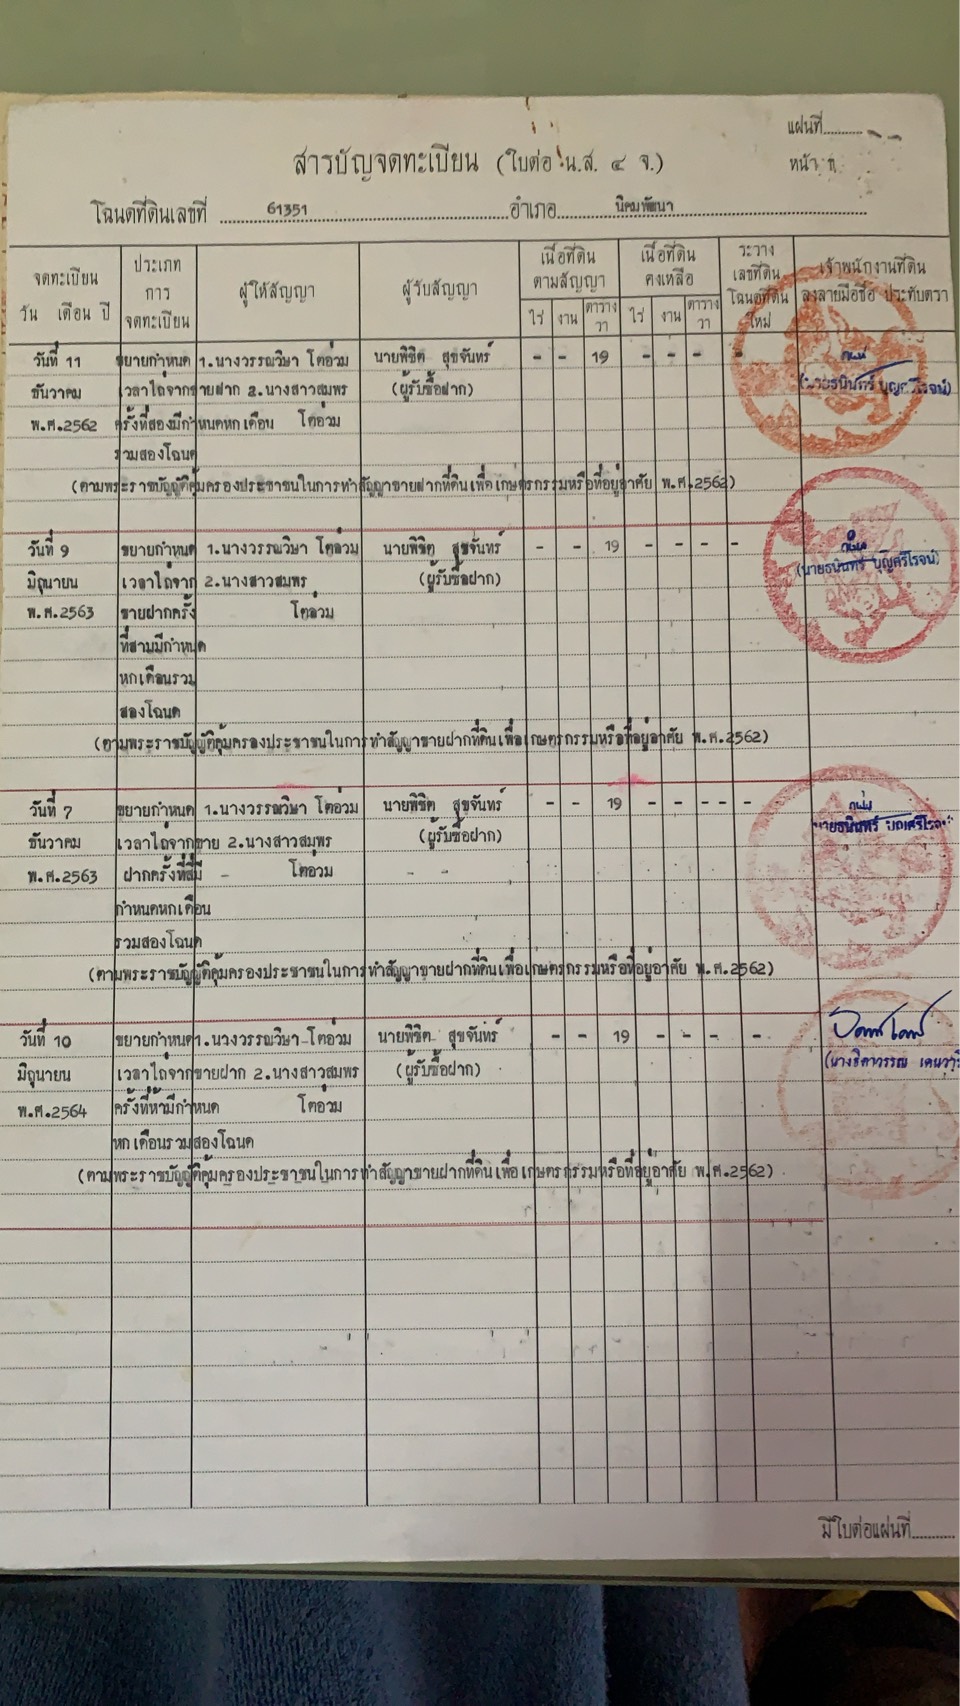 แผ่นที่
สารบัญจดทะเบียน (ใบต่อ น.ส. ๔ จ.)
หน้า ก
โฉนดที่ดินเลขที่ 61351 อำเภอ นิคมพัฒนา
จดทะเบียน วัน เดือน ปี
ประเภทการจดทะเบียน
ผู้ให้สัญญา
ผู้รับสัญญา
เนื้อที่ดินตามสัญญา
ไร่ งาน ตารางวา
เนื้อที่ดินคงเหลือ
ไร่ งาน ตารางวา
ระวาง เลขที่ดิน โฉนดที่ดินใหม่
เจ้าพนักงานที่ดิน ลงลายมือชื่อ ประทับตรา
วันที่ 11 ขยายกำหนด 1.นางวรรณวิษา โตอ่วม นายพิชิต สุขจันทร์ - - 19 - - - -
ธันวาคม เวลาไถ่จากขายฝาก 2.นางสาวสมพร (ผู้รับซื้อฝาก) (นายธนินทร์ บุญศรีโรจน์)
พ.ศ.2562 ครั้งที่สองมีกำหนดหกเดือน โตอ่วม
รวมสองโฉนด
(ตามพระราชบัญญัติคุ้มครองประชาชนในการทำสัญญาขายฝากที่ดินเพื่อเกษตรกรรมหรือที่อยู่อาศัย พ.ศ.2562)
วันที่ 9 ขยายกำหนด 1.นางวรรณวิษา โตอ่วม นายพิชิต สุขจันทร์ - - 19 - - - -
มิถุนายน เวลาไถ่จาก 2.นางสาวสมพร (ผู้รับซื้อฝาก) (นายธนินทร์ บุญศรีโรจน์)
พ.ศ.2563 ขายฝากครั้ง โตอ่วม
ที่สามมีกำหนด
หกเดือนรวม
สองโฉนด
(ตามพระราชบัญญัติคุ้มครองประชาชนในการทำสัญญาขายฝากที่ดินเพื่อเกษตรกรรมหรือที่อยู่อาศัย พ.ศ.2562)
วันที่ 7 ขยายกำหนด 1.นางวรรณวิษา โตอ่วม นายพิชิต สุขจันทร์ - - 19 - - - - -
ธันวาคม เวลาไถ่จากขาย 2.นางสาวสมพร (ผู้รับซื้อฝาก) นายธนินทร์ บุญศรีโรจน์
พ.ศ.2563 ฝากครั้งที่สี่มี โตอ่วม
กำหนดหกเดือน
รวมสองโฉนด
(ตามพระราชบัญญัติคุ้มครองประชาชนในการทำสัญญาขายฝากที่ดินเพื่อเกษตรกรรมหรือที่อยู่อาศัย พ.ศ.2562)
วันที่ 10 ขยายกำหนด 1.นางวรรณวิษา โตอ่วม นายพิชิต สุขจันทร์ - - 19 - - - -
มิถุนายน เวลาไถ่จากขายฝาก 2.นางสาวสมพร (ผู้รับซื้อฝาก)
พ.ศ.2564 ครั้งที่ห้ามีกำหนด โตอ่วม
หกเดือนรวมสองโฉนด
(ตามพระราชบัญญัติคุ้มครองประชาชนในการทำสัญญาขายฝากที่ดินเพื่อเกษตรกรรมหรือที่อยู่อาศัย พ.ศ.2562)
มีใบต่อแผ่นที่